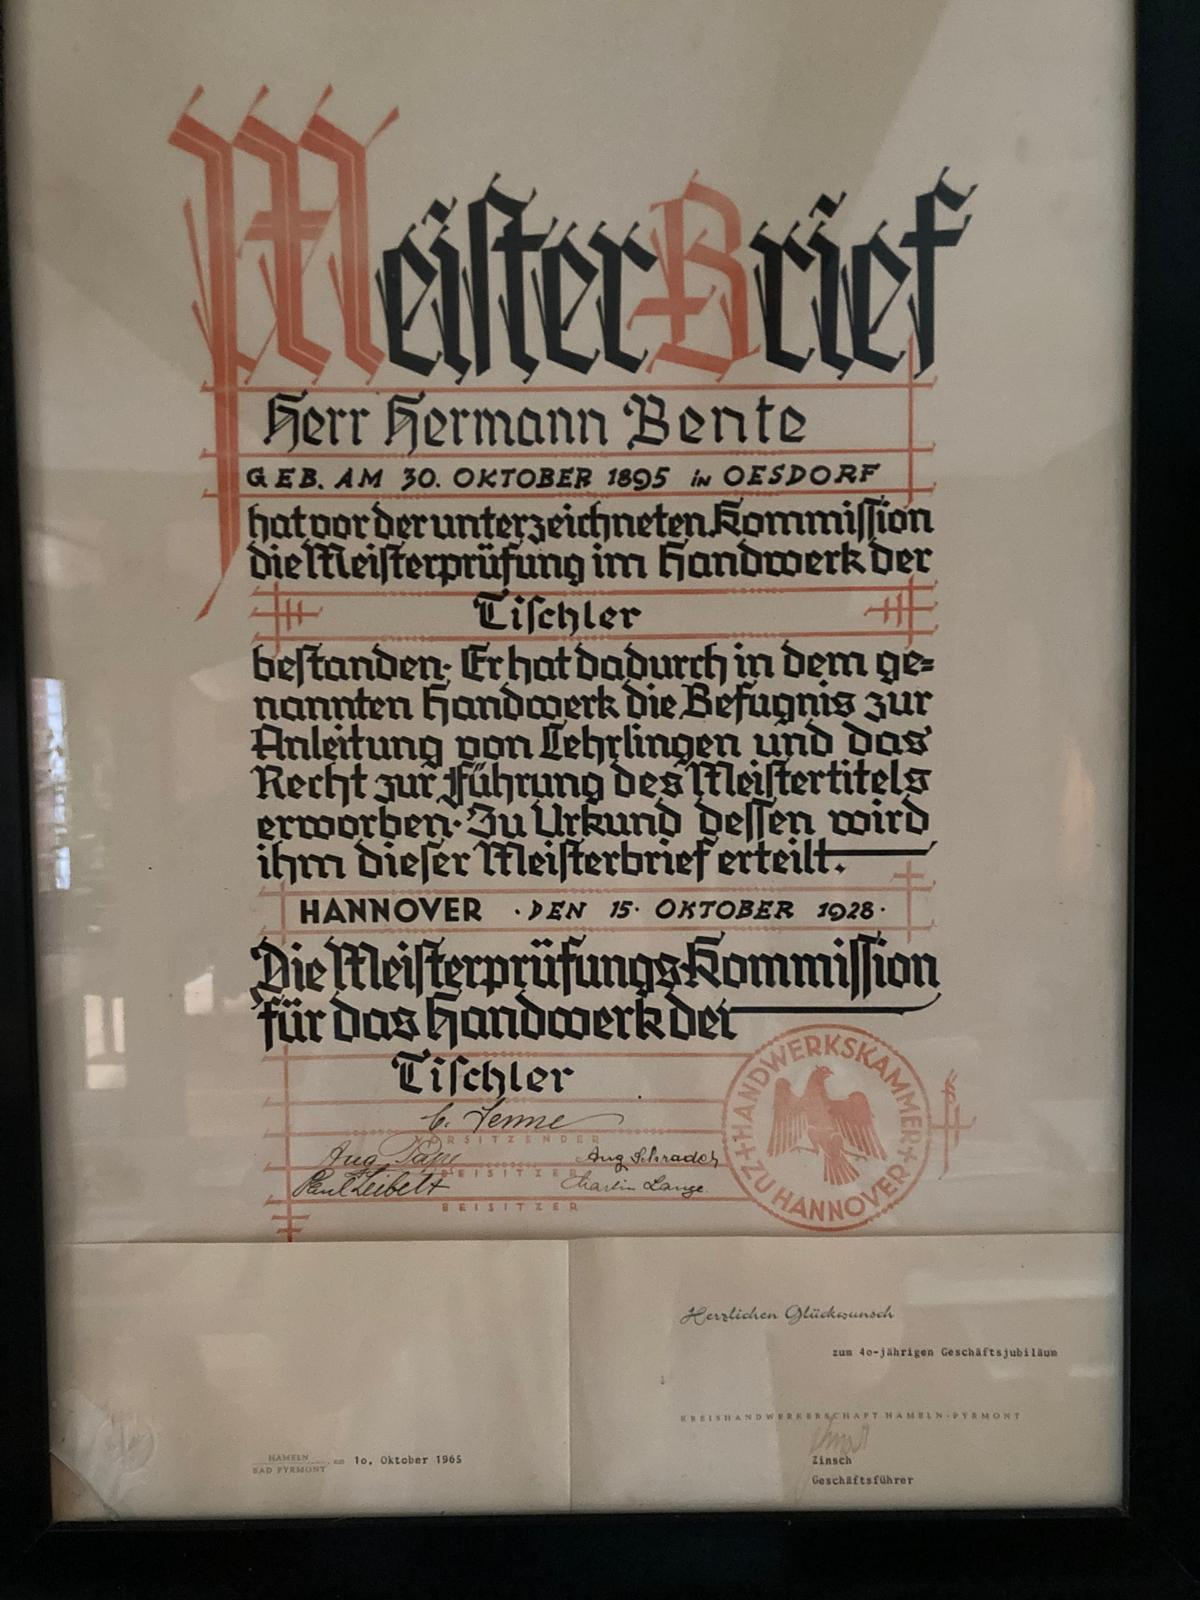 MeisterBrief
Herr Hermann Bente
GEB. AM 30. OKTOBER 1895 in OESDORF
hat vor der unterzeichneten Kommiſſion
die Meiſterprüfung im Handwerk der
Tiſchler
beſtanden. Er hat dadurch in dem ge=
nannten Handwerk die Befugnis zur
Anleitung von Lehrlingen und das
Recht zur Führung des Meiſtertitels
erworben. Zu Urkund deſſen wird
ihm dieſer Meiſterbrief erteilt.
HANNOVER · DEN 15. OKTOBER 1928 ·
Die Meiſterprüfungs-Kommiſſion
für das Handwerk der
Tiſchler
VORSITZENDER
Aug. Pape Aug Schrader
BEISITZER
Paul Leibelt Martin Lange.
BEISITZER
HANDWERKSKAMMER
ZU HANNOVER
Herzlichen Glückwunsch
zum 4o-jährigen Geschäftsjubiläum
KREISHANDWERKERSCHAFT HAMELN-PYRMONT
Zinsch
Geschäftsführer
HAMELN
BAD PYRMONT, am 1o. Oktober 1965